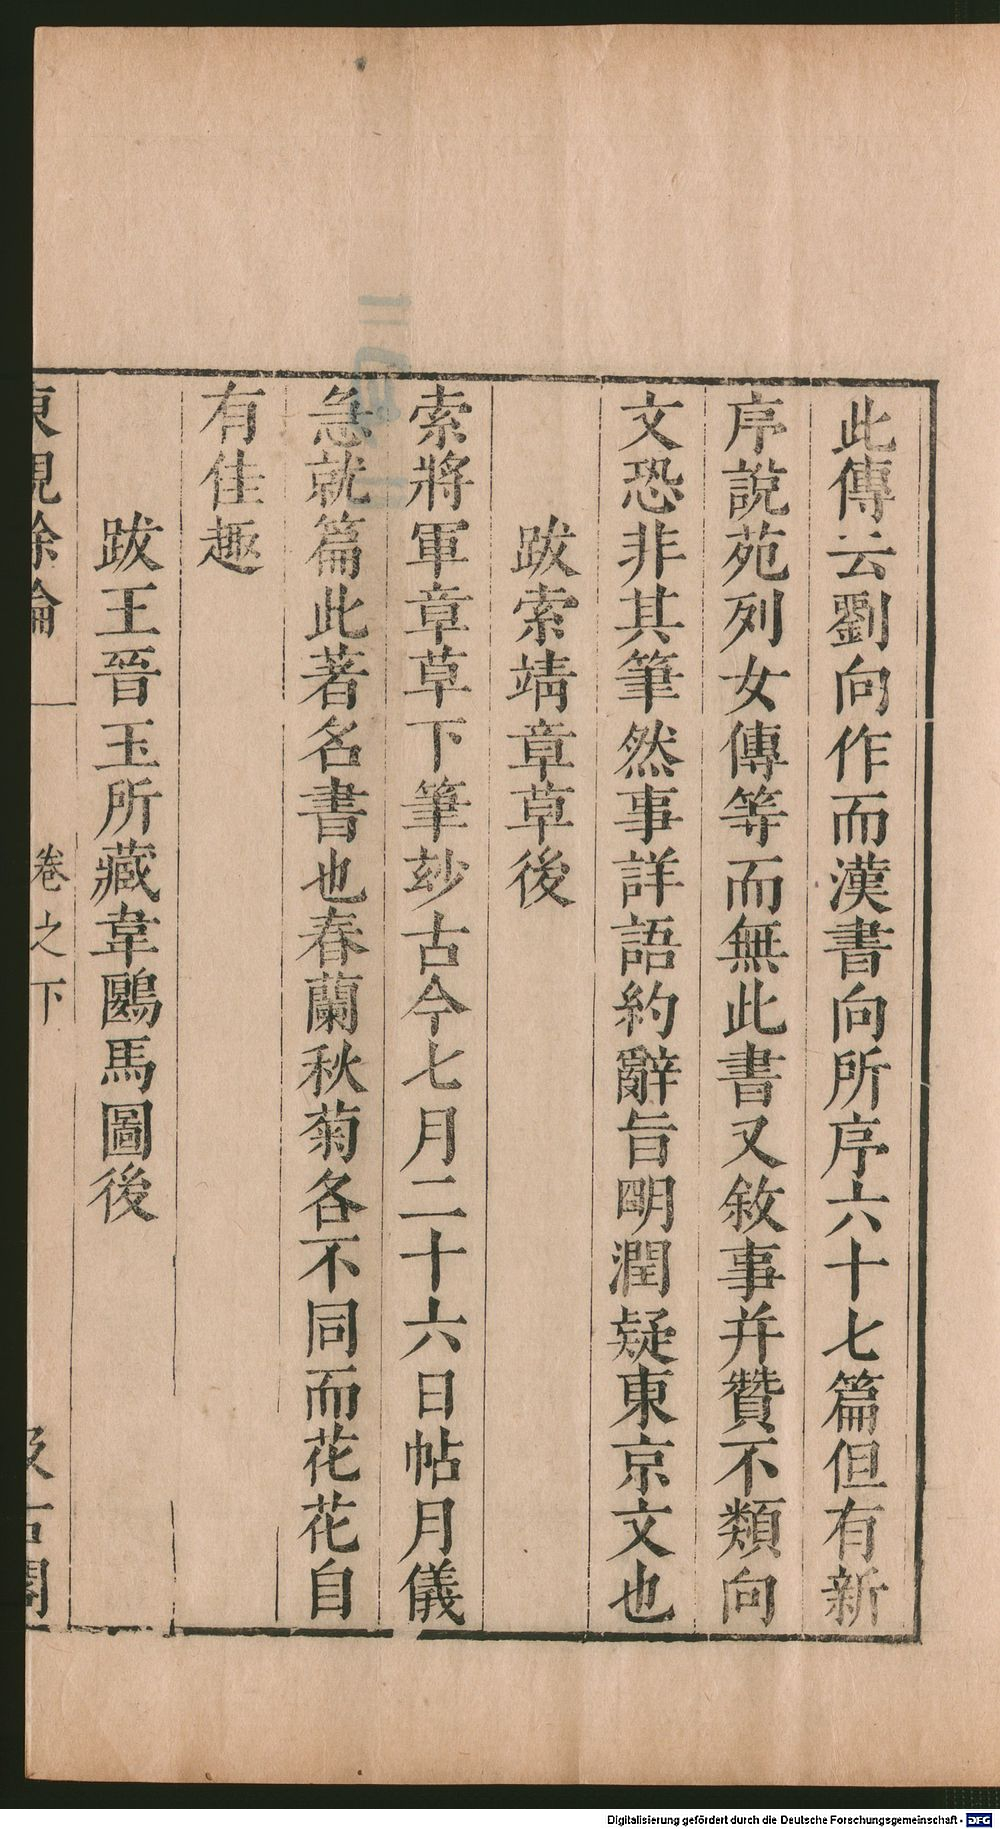 此傳云劉向作而漢書向所序六十七篇但有新
序說苑列女傳等而無此書又敘事并贊不類向
文恐非其筆然事詳語約辭旨明潤疑東京文也
跋索靖章草後
索將軍章草下筆玅古今七月二十六日帖月儀
急就篇此著名書也春蘭秋菊各不同而花花自
有佳趣
跋王晉玉所藏韋鷗馬圖後
東觀餘論
卷之下
汲古閣
Digitalisierung gefördert durch die Deutsche Forschungsgemeinschaft - DFG